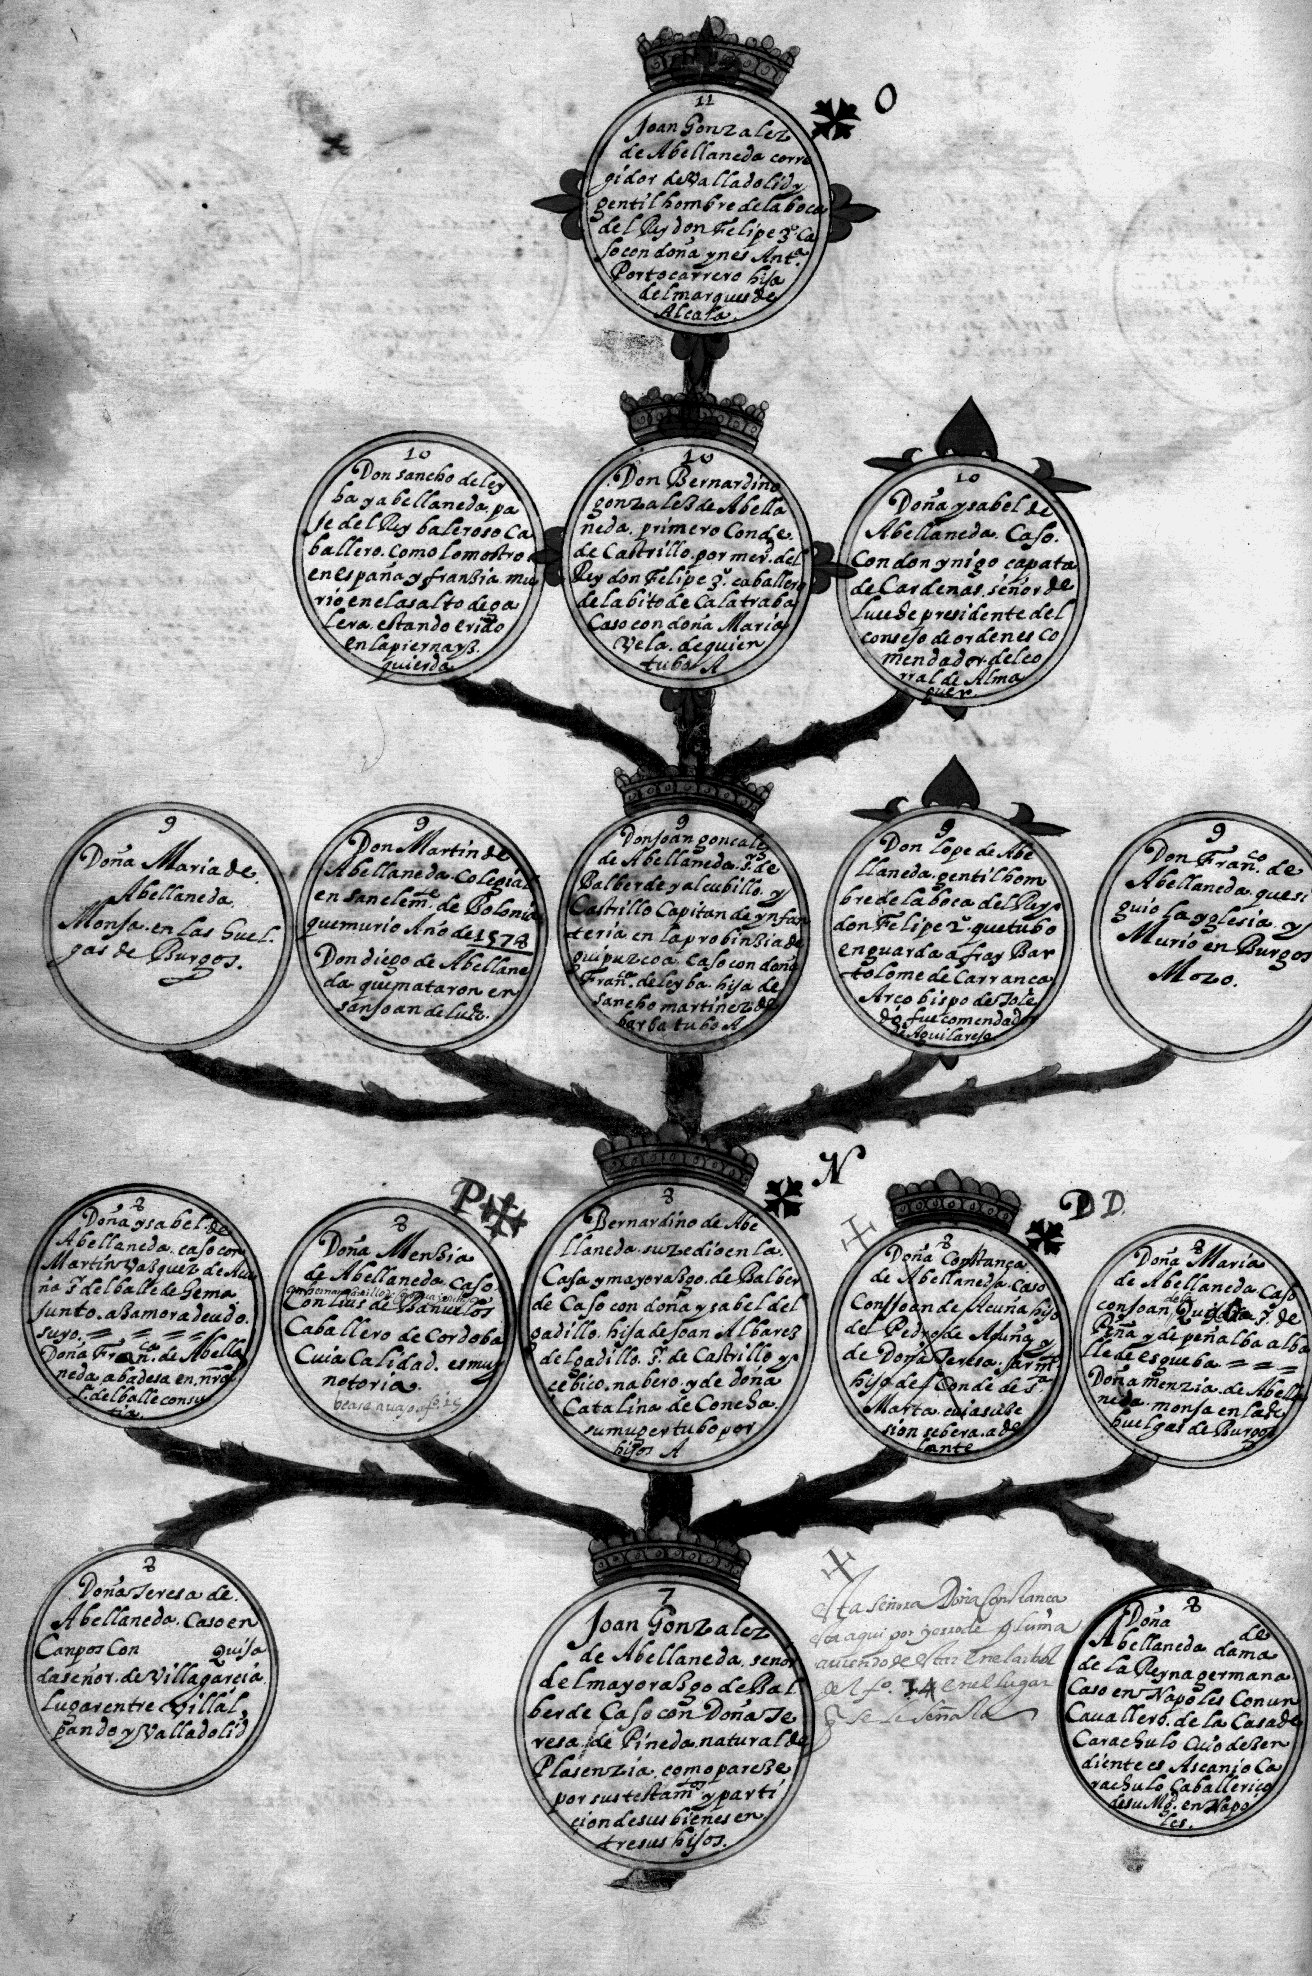 11
Joan Gonzalez
de Abellaneda corre
gidor de Valladolid y
gentil hombre de la boca
del Rey don Felipe 3º. Ca
so con doña ynes Antª.
Portocarrero hija
del marques de
Alcala.
O
10
Don sancho de ley
ba y abellaneda. pa
je del Rey baleroso Ca
ballero. como lo mostro
en españa y franzia. mu
rio en el asalto de ga
lera. estando erido
en la pierna yz
quierda
10
Don Bernardino
gonzalez de Abella
neda. primero Conde
de Castrillo. por mer. del
Rey don Felipe 3º. caballero
del abito de Calatraba
Caso con doña Maria
Vela. de quien
tubo A
10
Doña ysabel de
Abellaneda. Caso.
Con don ynigo çapata
de Cardenas. señor de
presidente del
consejo de ordenes co
mendador del co
rral de Alma
guer.
9
Doña Maria de.
Abellaneda.
Monja. en las huel.
gas de Burgos.
9
Don Martin de
Abellaneda Colegial
en san clem.te de Bolonia
que murio Año de 1578
Don diego de Abellane
da que mataron en
san joan de luz.
9
Don joan gonçalez
de Abellaneda. s.r de
Balberde y alcubillo. y
Castrillo Capitan de ynfan
teria en la probinzia de
guipuzcoa. caso con doña
Fran.ca de leyba. hija de
sancho martinez de
barba tubo A
9
Don Lope de Abe
llaneda. gentil hom
bre de la boca del Rey
don Felipe 2º. que tubo
en guarda a fray Bar
tolome de Carrança
Arcobispo de Tole
do fue comendador
de Aguilarejo.
9
Don Fran.co de
Abellaneda. que si
guio la yglesia. y
Murio en Burgos
Mozo.
8
Doña ysabel. de
Abellaneda. caso con
Martin Vazquez de Acu
ña s.r del balle de Gema
junto. a Bamora deudo.
suyo. = = = =
Doña Fran.ca de Abella
neda. abadesa en. nra
s.ª del balle con su
tia.
P
8
Doña Menzia
de Abellaneda. Caso.
Con luis de Bañuelos
Caballero de Cordoba
Cuia Calidad. es muy
notoria.
N
8
Bernardino de Abe
llaneda. suzedio en la
Casa y mayorazgo. de Balber
de Caso con doña ysabel del
gadillo. hija de joan Albarez
delgadillo. s.r de Castrillo y
cebico. nabero. y de doña
Catalina de Concha.
su muger tubo por
hijos A
D D.
8
Doña Constança
de Abellaneda. caso
Con joan de Acuña hijo
del Pedro de Acuña y
de Doña Teresa. sarm.to
hija del Conde de S.ta
Marta. cuia sube
sion se bera. ade
lante
8
Doña Maria
de Abellaneda Caso
con joan. s.r de
Piña y de peñalba alba
lle de esgueba = = =
Doña menzia. de Abella
neda monja en la de
huelgas de Burgos
8
Doña Teresa de.
Abellaneda. Caso en
Canpos Con Quija
da señor. de Villagarcia
lugar entre Villal
pando y Valladolid
7
Joan Gonzalez
de Abellaneda. señor
del mayorazgo de Bal
berde Caso con Doña Te
resa. de Pineda. natural de
Plasenzia. como pareze
por sus testam.tos y parti
cion de sus bienes en
tre sus hijos.
esta señora Doña Constança
esta aqui por yerro de pluma
auiendo de estar en el arbol
del fo. 14 en el lugar
q se le señala
8
Doña de
Abellaneda dama
de la Reyna germana
Caso en Napoles Con un
Cauallero. de la Casa de
Carachulo Cuio dezen
diente es Ascanio Ca
rachulo Caballerico
de su Mg.d en Napo
les.